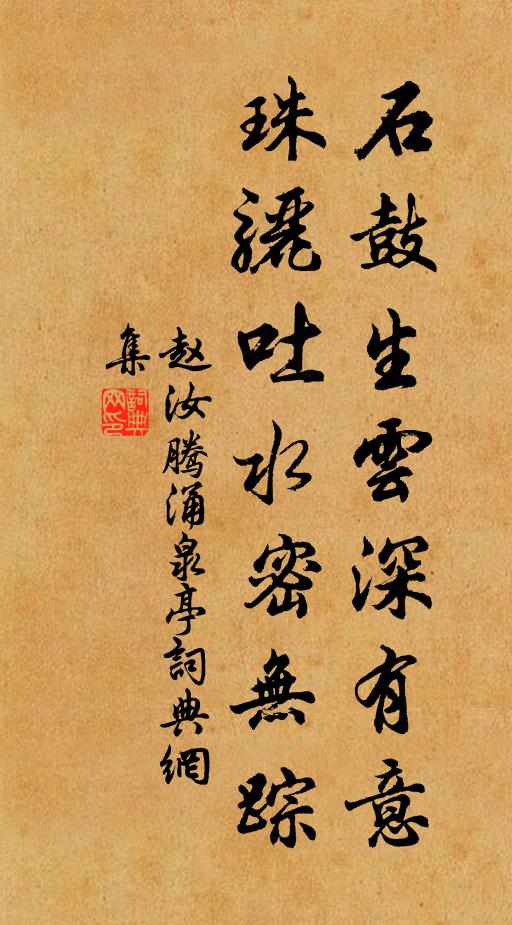 石鼓生雲深有意
珠骊吐水密無踪
赵汝腾涌泉亭詞典網
集
詞典網印